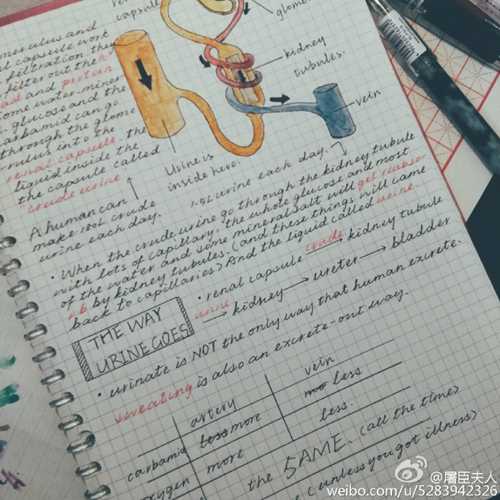 capsule
glome
merulus and
capsule work
filtration, they
filter out the
and protein
some water, miner
glucose and the
carbamid can go
through the glome
rulus into the
renal capsule, the
liquid inside the
the capsule called
"crude urine".
kidney
tubules.
vein
Urine is
inside here.
A human can
make 180L crude
urine each day.
urine each day.
· When the crude urine go through the kidney tubule
with lots of capillary, the whole glucose and most
of the water and some mineral salt will get reabsor
by kidney tubules. (and these things will came
back to capillaries) And the liquid called urine.
THE WAY
URINE GOES
· renal capsule crude kidney tubule
urine kidney → ureter → bladder
· urinate is NOT the only way that human excrete.
sweating is also an excrete-out way.
artery vein
carbamid more less
oxygen more less.
the SAME. (all the time)
(unless you got illness)
@屠臣夫人
weibo.com/u/5283942326